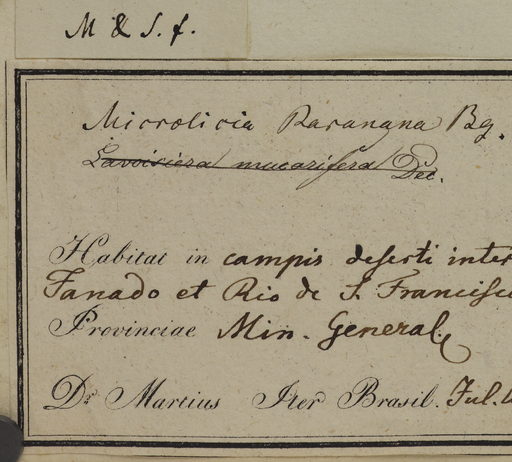 M & S. f.
Microlicia Raranana Bg.
Lavoisiera mucorifera Dec.
Habitat in campis deserti inter
Fanado et Rio de S. Francisc
Provinciae Min. General.
Dr. Martius Iter Brasil. Jul.